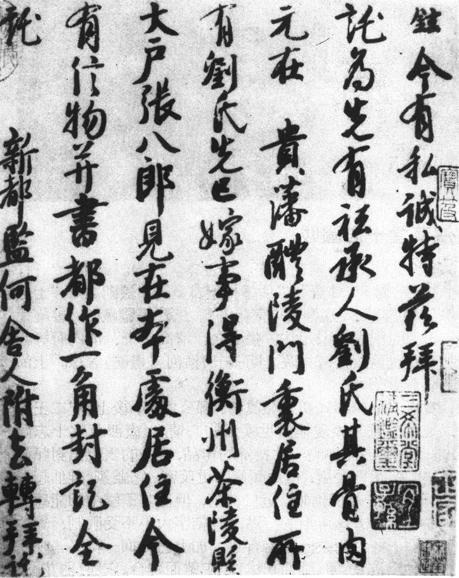 鉉 今有私誠特茲拜
託為先有祗承人劉氏其骨肉
元在 貴藩醴陵門裏居住所
有劉氏先已嫁事得衡州茶陵縣
大戶張八郎見在本處居住今
有信物并書都作一角封記全
託 新都監何舍人附去轉拜託
三希堂精鑑璽
宜子孫